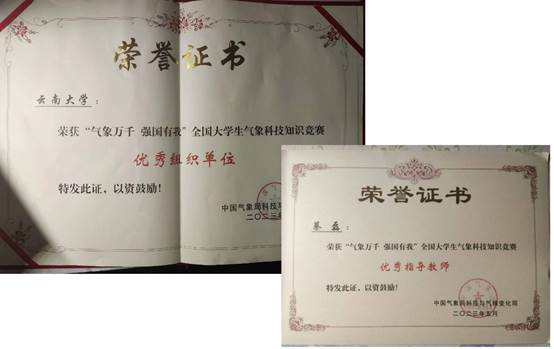 荣誉证书
云南大学：
荣获“气象万千 强国有我”全国大学生气象科技知识竞赛
优秀组织单位
特发此证，以资鼓励！
中国气象局科技与
二〇二三年
荣誉证书
蔡磊：
荣获“气象万千 强国有我”全国大学生气象科技知识竞赛
优秀指导教师
特发此证，以资鼓励！
中国气象局科技与气候变化司
二〇二三年五月